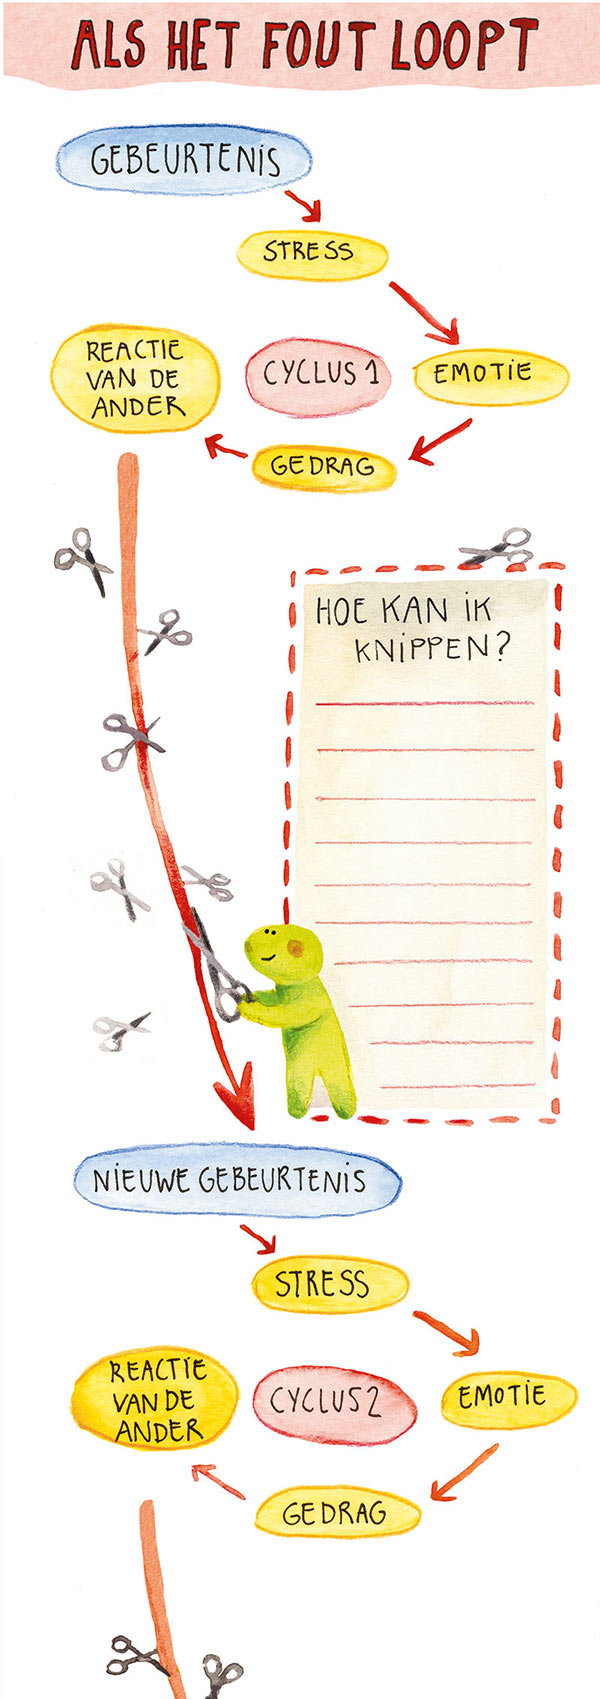 ALS HET FOUT LOOPT
GEBEURTENIS
STRESS
EMOTIE
GEDRAG
REACTIE
VAN DE
ANDER
CYCLUS 1
HOE KAN IK
KNIPPEN?
NIEUWE GEBEURTENIS
STRESS
EMOTIE
GEDRAG
REACTIE
VAN DE
ANDER
CYCLUS 2